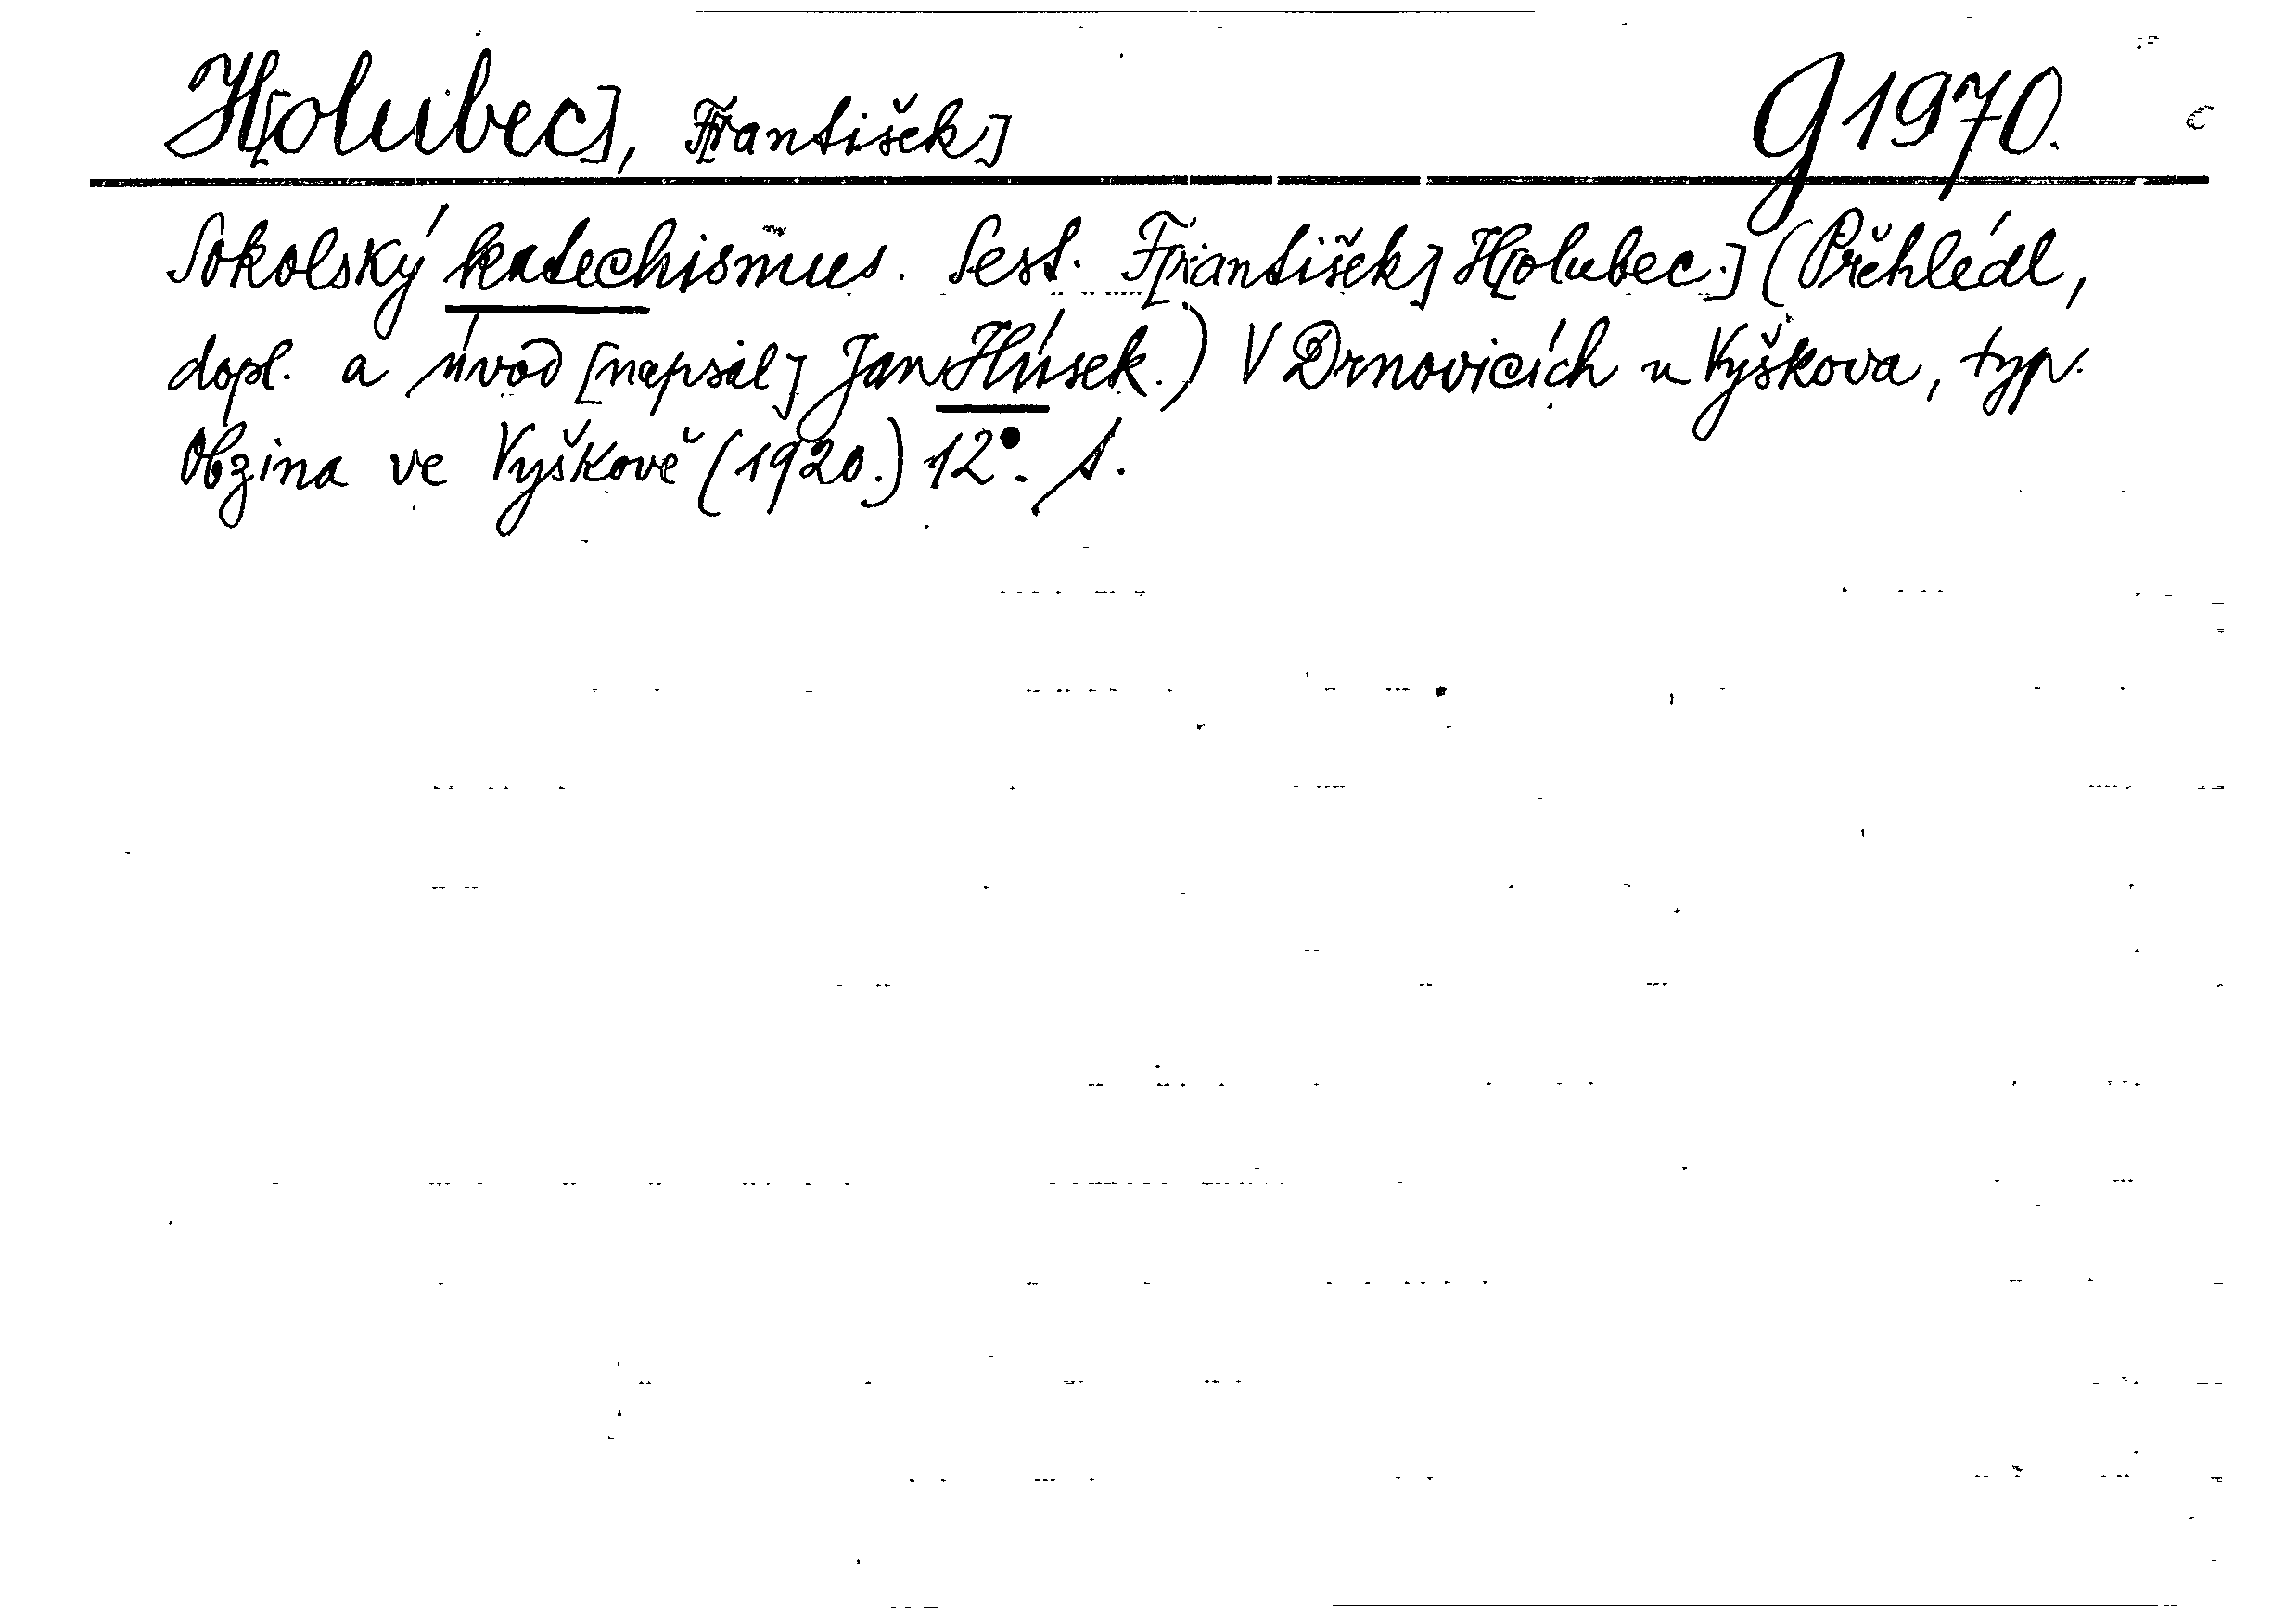 H[olubec], F[rantišek] g 1970.
Sokolský katechismus. Sest. F[rantišek] H[olubec.] (Přehlédl,
dopl. a úvod [napsal] Jan Húsek.) V Drnovicích u Vyškova, typ.
Obzina ve Vyškově (1920.) 12°. s.